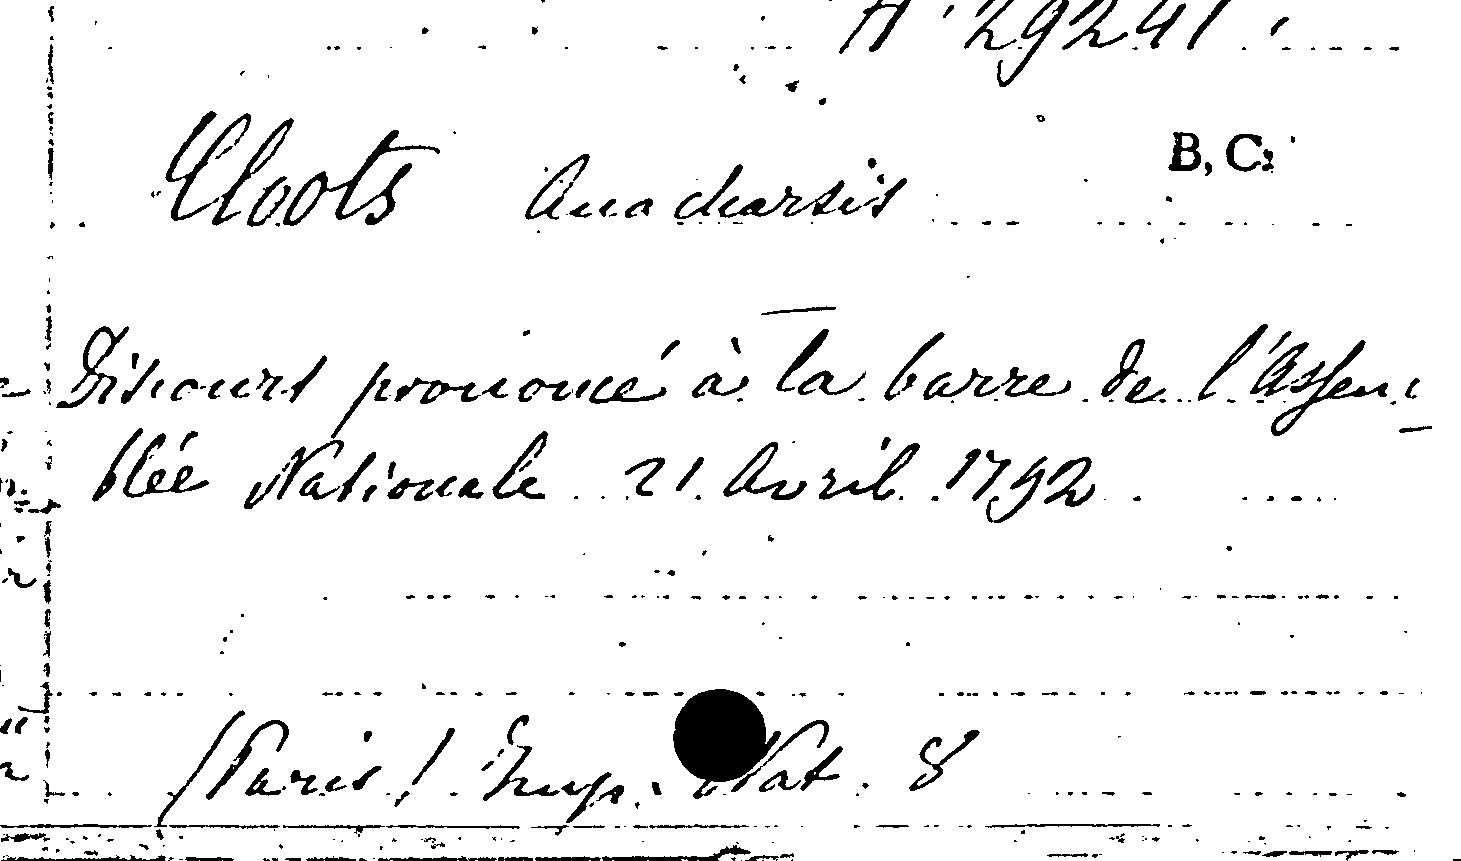 A 29241
B, C:
Cloots Anacharsis
Discours prononcé à la barre de l'Assem
blée Nationale 21 Avril 1792
(Paris) Imp. Nat. 8